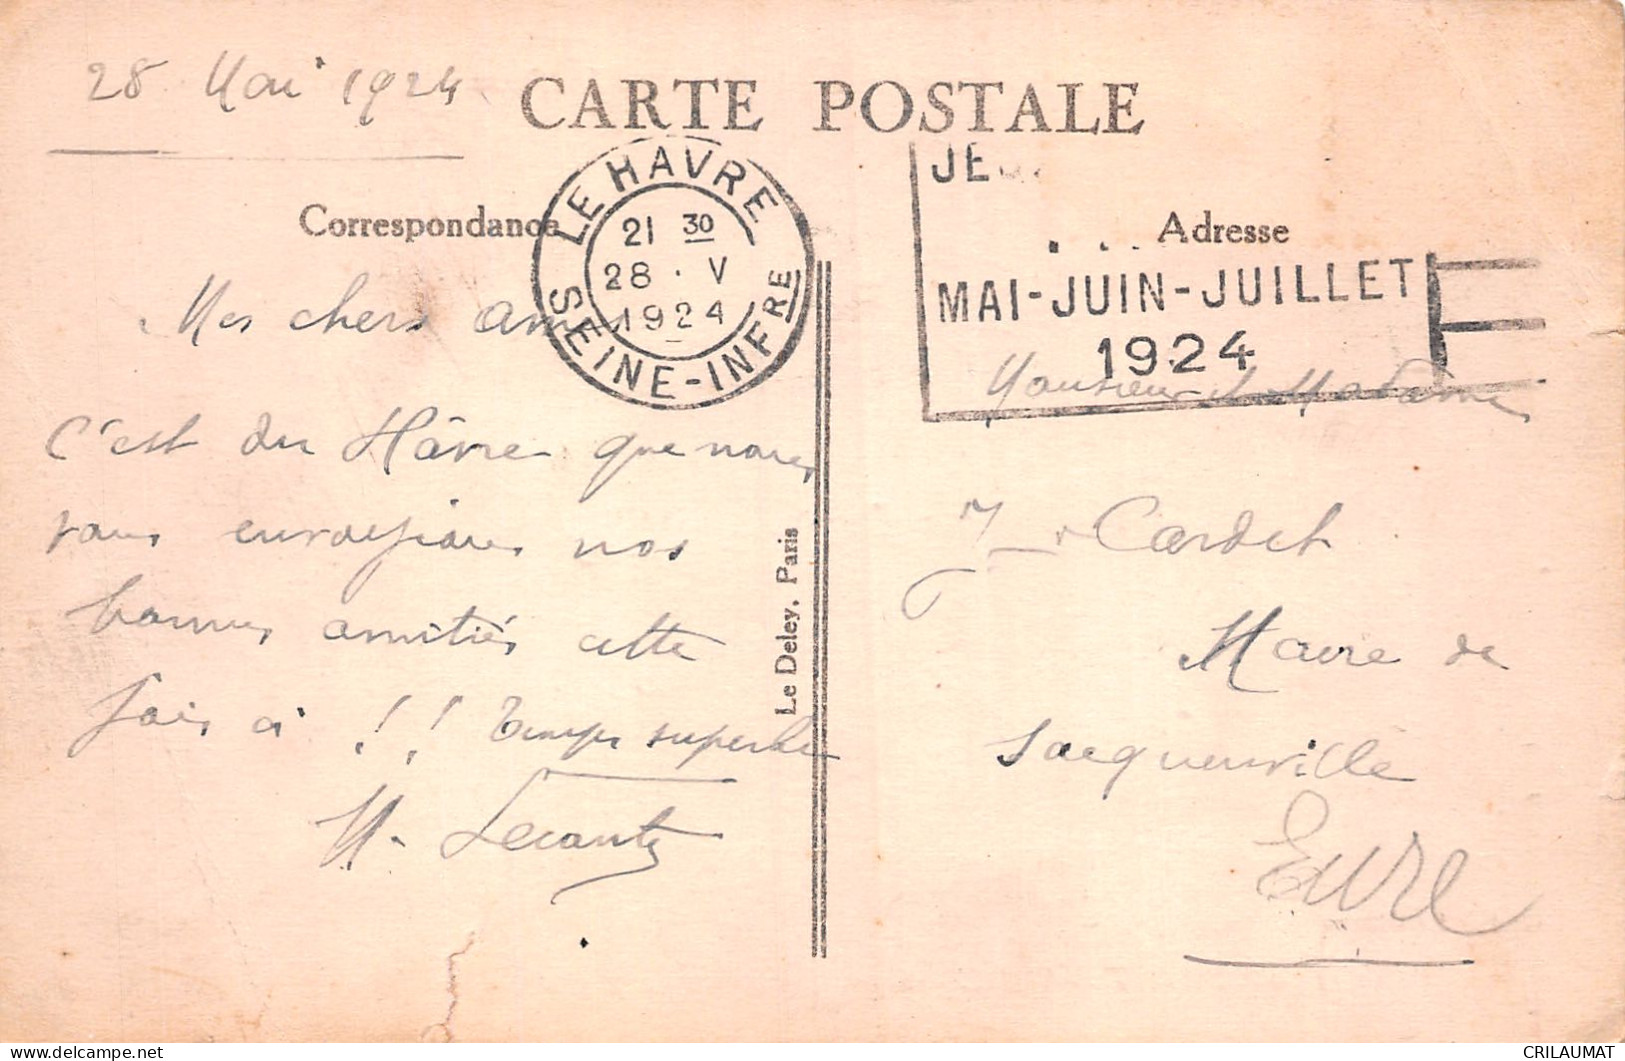 28 Mai 1924
CARTE POSTALE
Correspondance
LE HAVRE
21 30
28 · V
1924
SEINE-INFRE
JE
Adresse
MAI-JUIN-JUILLET
1924
Mes chers amis
C'est du Hâvre que nous
vous envoyions nos
bonnes amitiés cette
fois ci !! Temps superbe
Monsieur et Madame
Cardet
Maire de
Sacquenville
Eure
Le Deley, Paris
CRILAUMAT